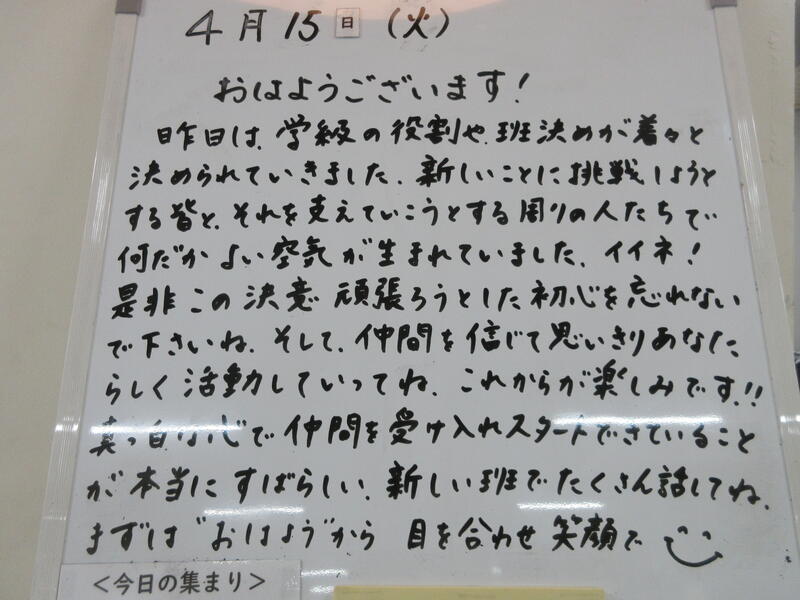 4月15日（火）
おはようございます！
昨日は、学級の役割や、班決めが着々と
決められていきました。新しいことに挑戦しようと
する皆と、それを支えていこうとする周りの人たちで
何だかよい空気が生まれていました。イイネ！
是非この決意 頑張ろうとした初心を忘れない
で下さいね。そして、仲間を信じて思いきりあなた
らしく活動していってね。これからが楽しみです!!
真っ白な心で仲間を受け入れスタートできていること
が本当にすばらしい。新しい班でたくさん話してね。
まずは“おはよう”から 目を合わせ 笑顔で
＜今日の集まり＞